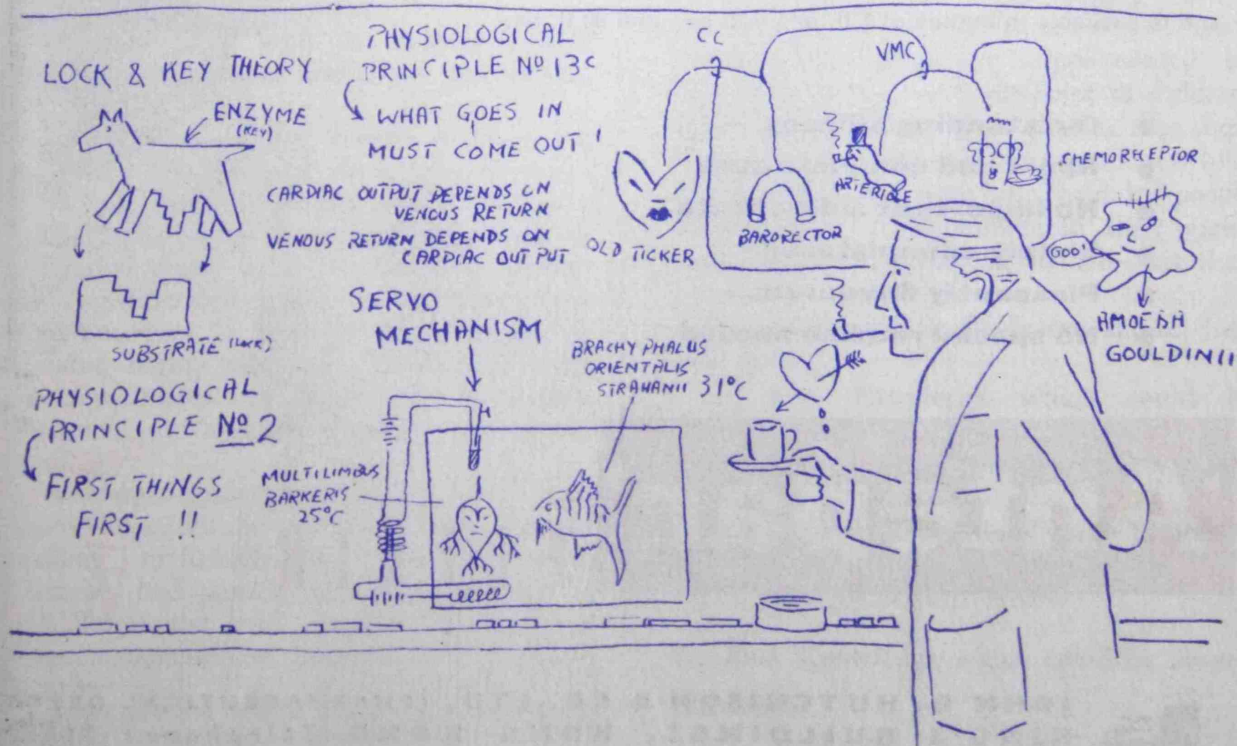 LOCK & KEY THEORY
ENZYME
(KEY)
SUBSTRATE (LOCK)
PHYSIOLOGICAL
PRINCIPLE Nº 2
FIRST THINGS
FIRST !!
PHYSIOLOGICAL
PRINCIPLE Nº 13c
WHAT GOES IN
MUST COME OUT !
CARDIAC OUTPUT DEPENDS ON
VENOUS RETURN
VENOUS RETURN DEPENDS ON
CARDIAC OUTPUT
SERVO
MECHANISM
MULTILIMBUS
BARKERIS
25°C
BRACHYPHALUS
ORIENTALIS
STRAHANII 31°C
CC
VMC
OLD TICKER
BARORECTOR
ARTERIOLE
CHEMORECEPTOR
GOO!
AMOEBA
GOULDINII